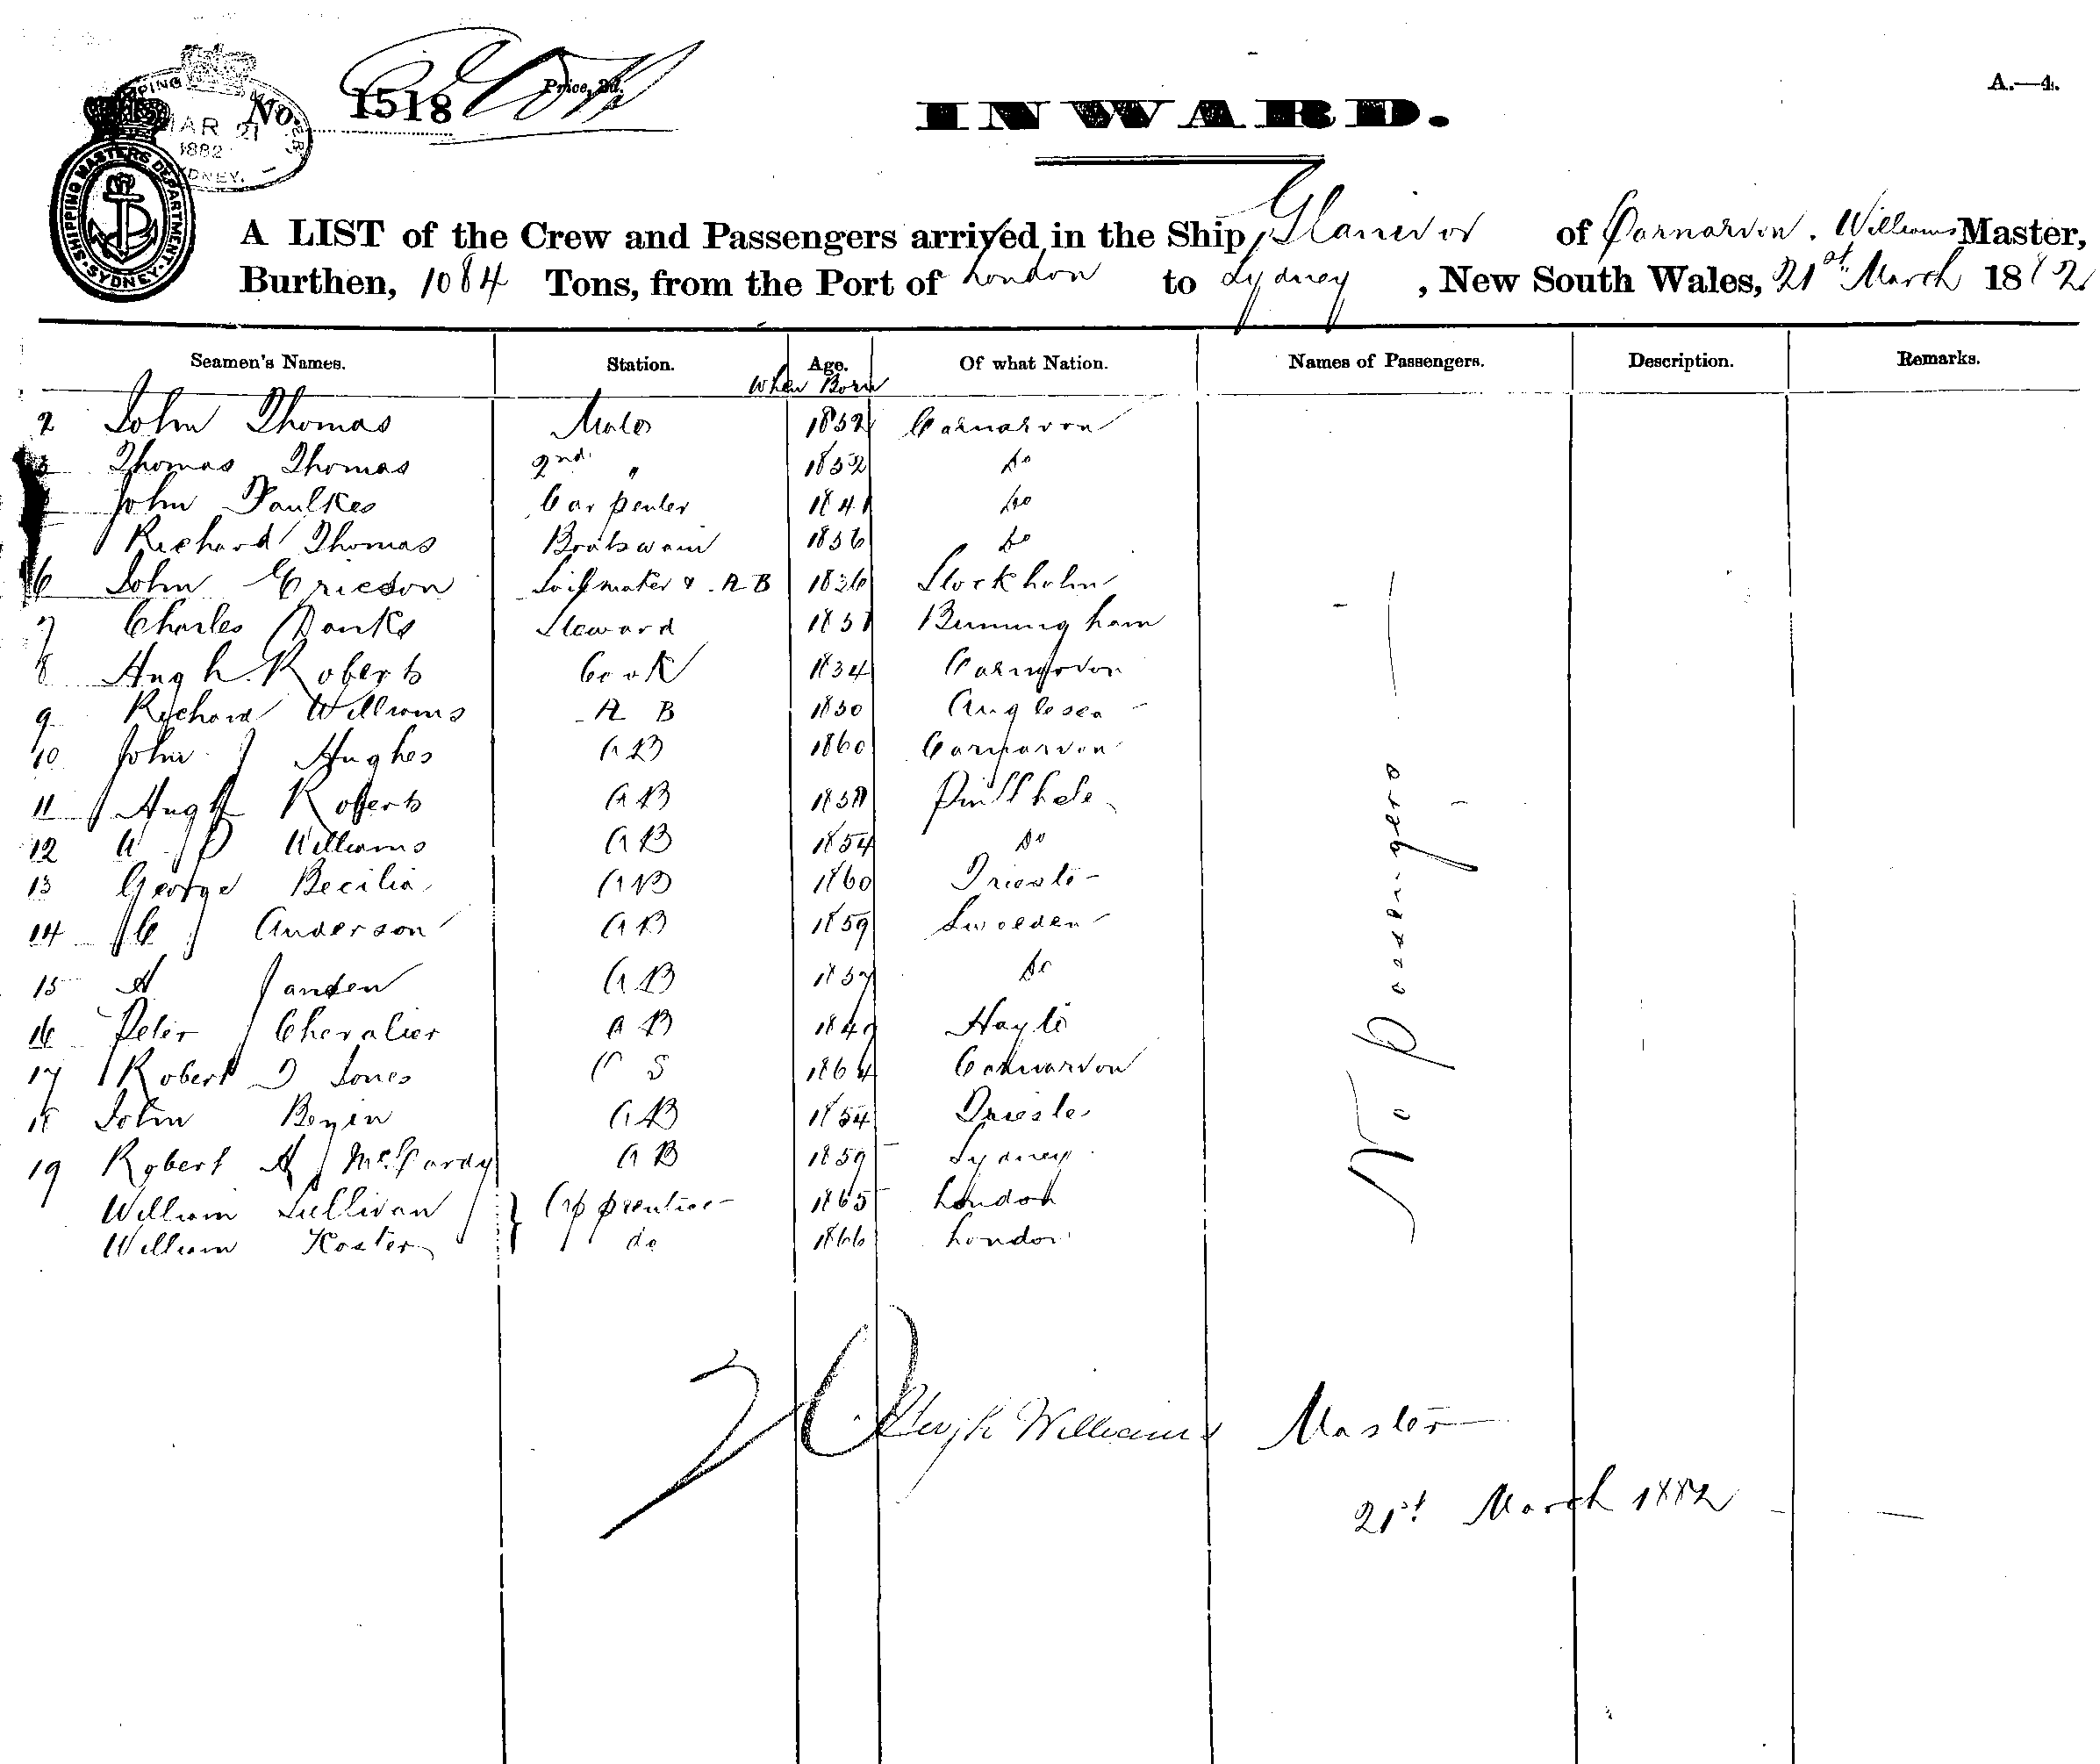 No. 1518 Price, 2d. A.—4.
SHIPPING MAR 21 1882 SYDNEY.
SHIPPING MASTERS DEPARTMENT · SYDNEY ·
INWARD.
A LIST of the Crew and Passengers arrived in the Ship, Glanivor of Carnarvon. Williams Master,
Burthen, 1084 Tons, from the Port of London to Sydney, New South Wales, 21st March 1882
Seamen's Names. Station. Age. Of what Nation. Names of Passengers. Description. Remarks.
When Born
2 John Thomas Mate 1852 Carnarvon
3 Thomas Thomas 2nd " 1852 do
John Faulkes Carpenter 1841 do
Richard Thomas Boatswain 1856 do
6 John Ericson Sailmaker & AB 1836 Stockholm
7 Charles Danks Steward 1851 Birmingham
8 Hugh Roberts Cook 1834 Carnarvon
9 Richard Williams AB 1850 Anglesea
10 John Hughes AB 1860 Carnarvon
11 Hugh Roberts AB 1858 Pwllheli
12 W P Williams AB 1854 do
13 George Becilia AB 1860 Trieste
14 C Anderson AB 1859 Sweden
15 A Jansen AB 1857 do
16 Peter Chevalier AB 1849 Hayti
17 Robert D Jones OS 1864 Carnarvon
18 John Beyin AB 1854 Trieste
19 Robert A McCardy AB 1859 Sydney
William Sullivan } Apprentice 1865 London
William Foster do 1866 London
No Passengers
Hugh Williams Master
21st March 1882